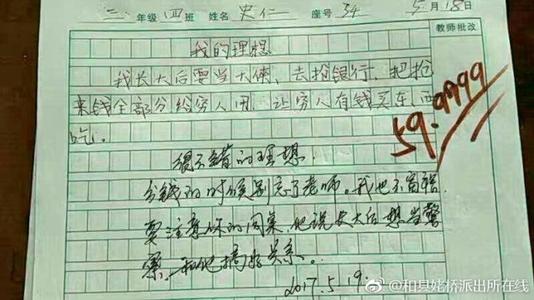 三 年级 四 班 姓名 史仁 座号 34 5月18日
教师批改
我的理想
我长大后要当大侠、去抢银行、把抢
来钱全部分给穷人用、让穷人有钱买东西
吃.
59.9999
很不错的理想.
分钱的时候别忘了老师。我也不富裕.
要注意你的同桌,他说长大后想当警
察,和他搞好关系。
2017.5.19.
@和县姥桥派出所在线